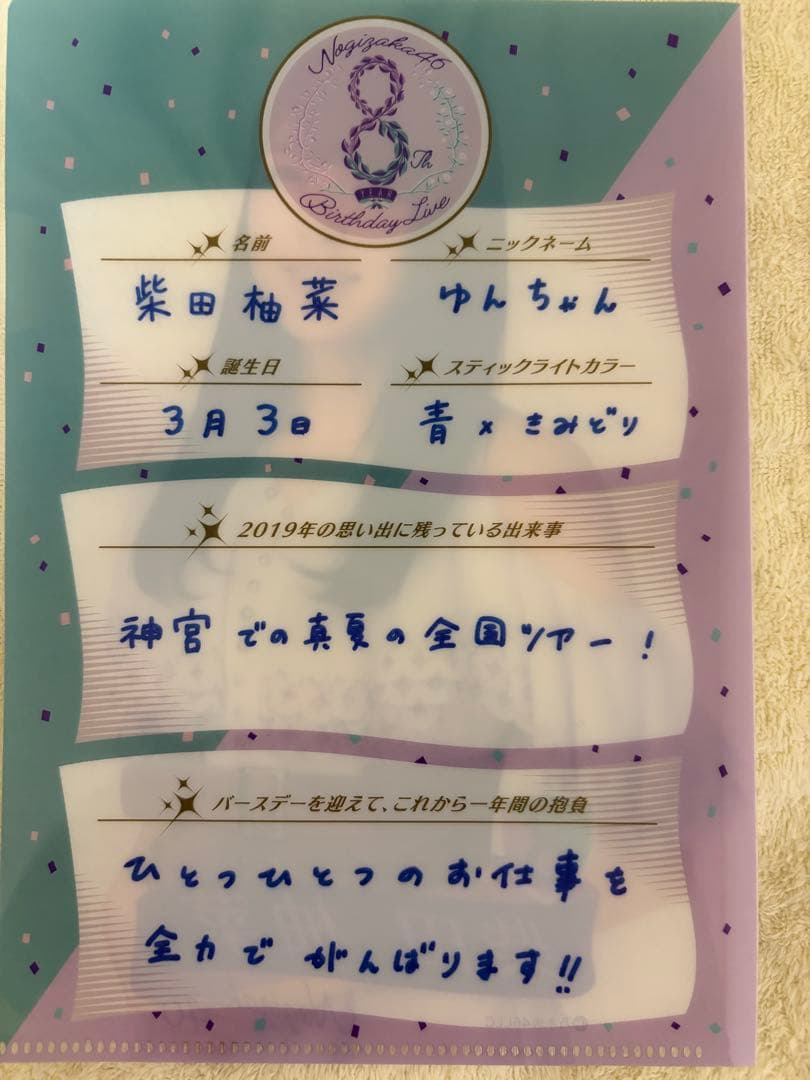 Nogizaka46
8Th
YEAR
Birthday Live
名前
ニックネーム
柴田柚菜
ゆんちゃん
誕生日
スティックライトカラー
3月3日
青×きみどり
2019年の思い出に残っている出来事
神宮での真夏の全国ツアー!
バースデーを迎えて、これから一年間の抱負
ひとつひとつのお仕事を
全力でがんばります!!